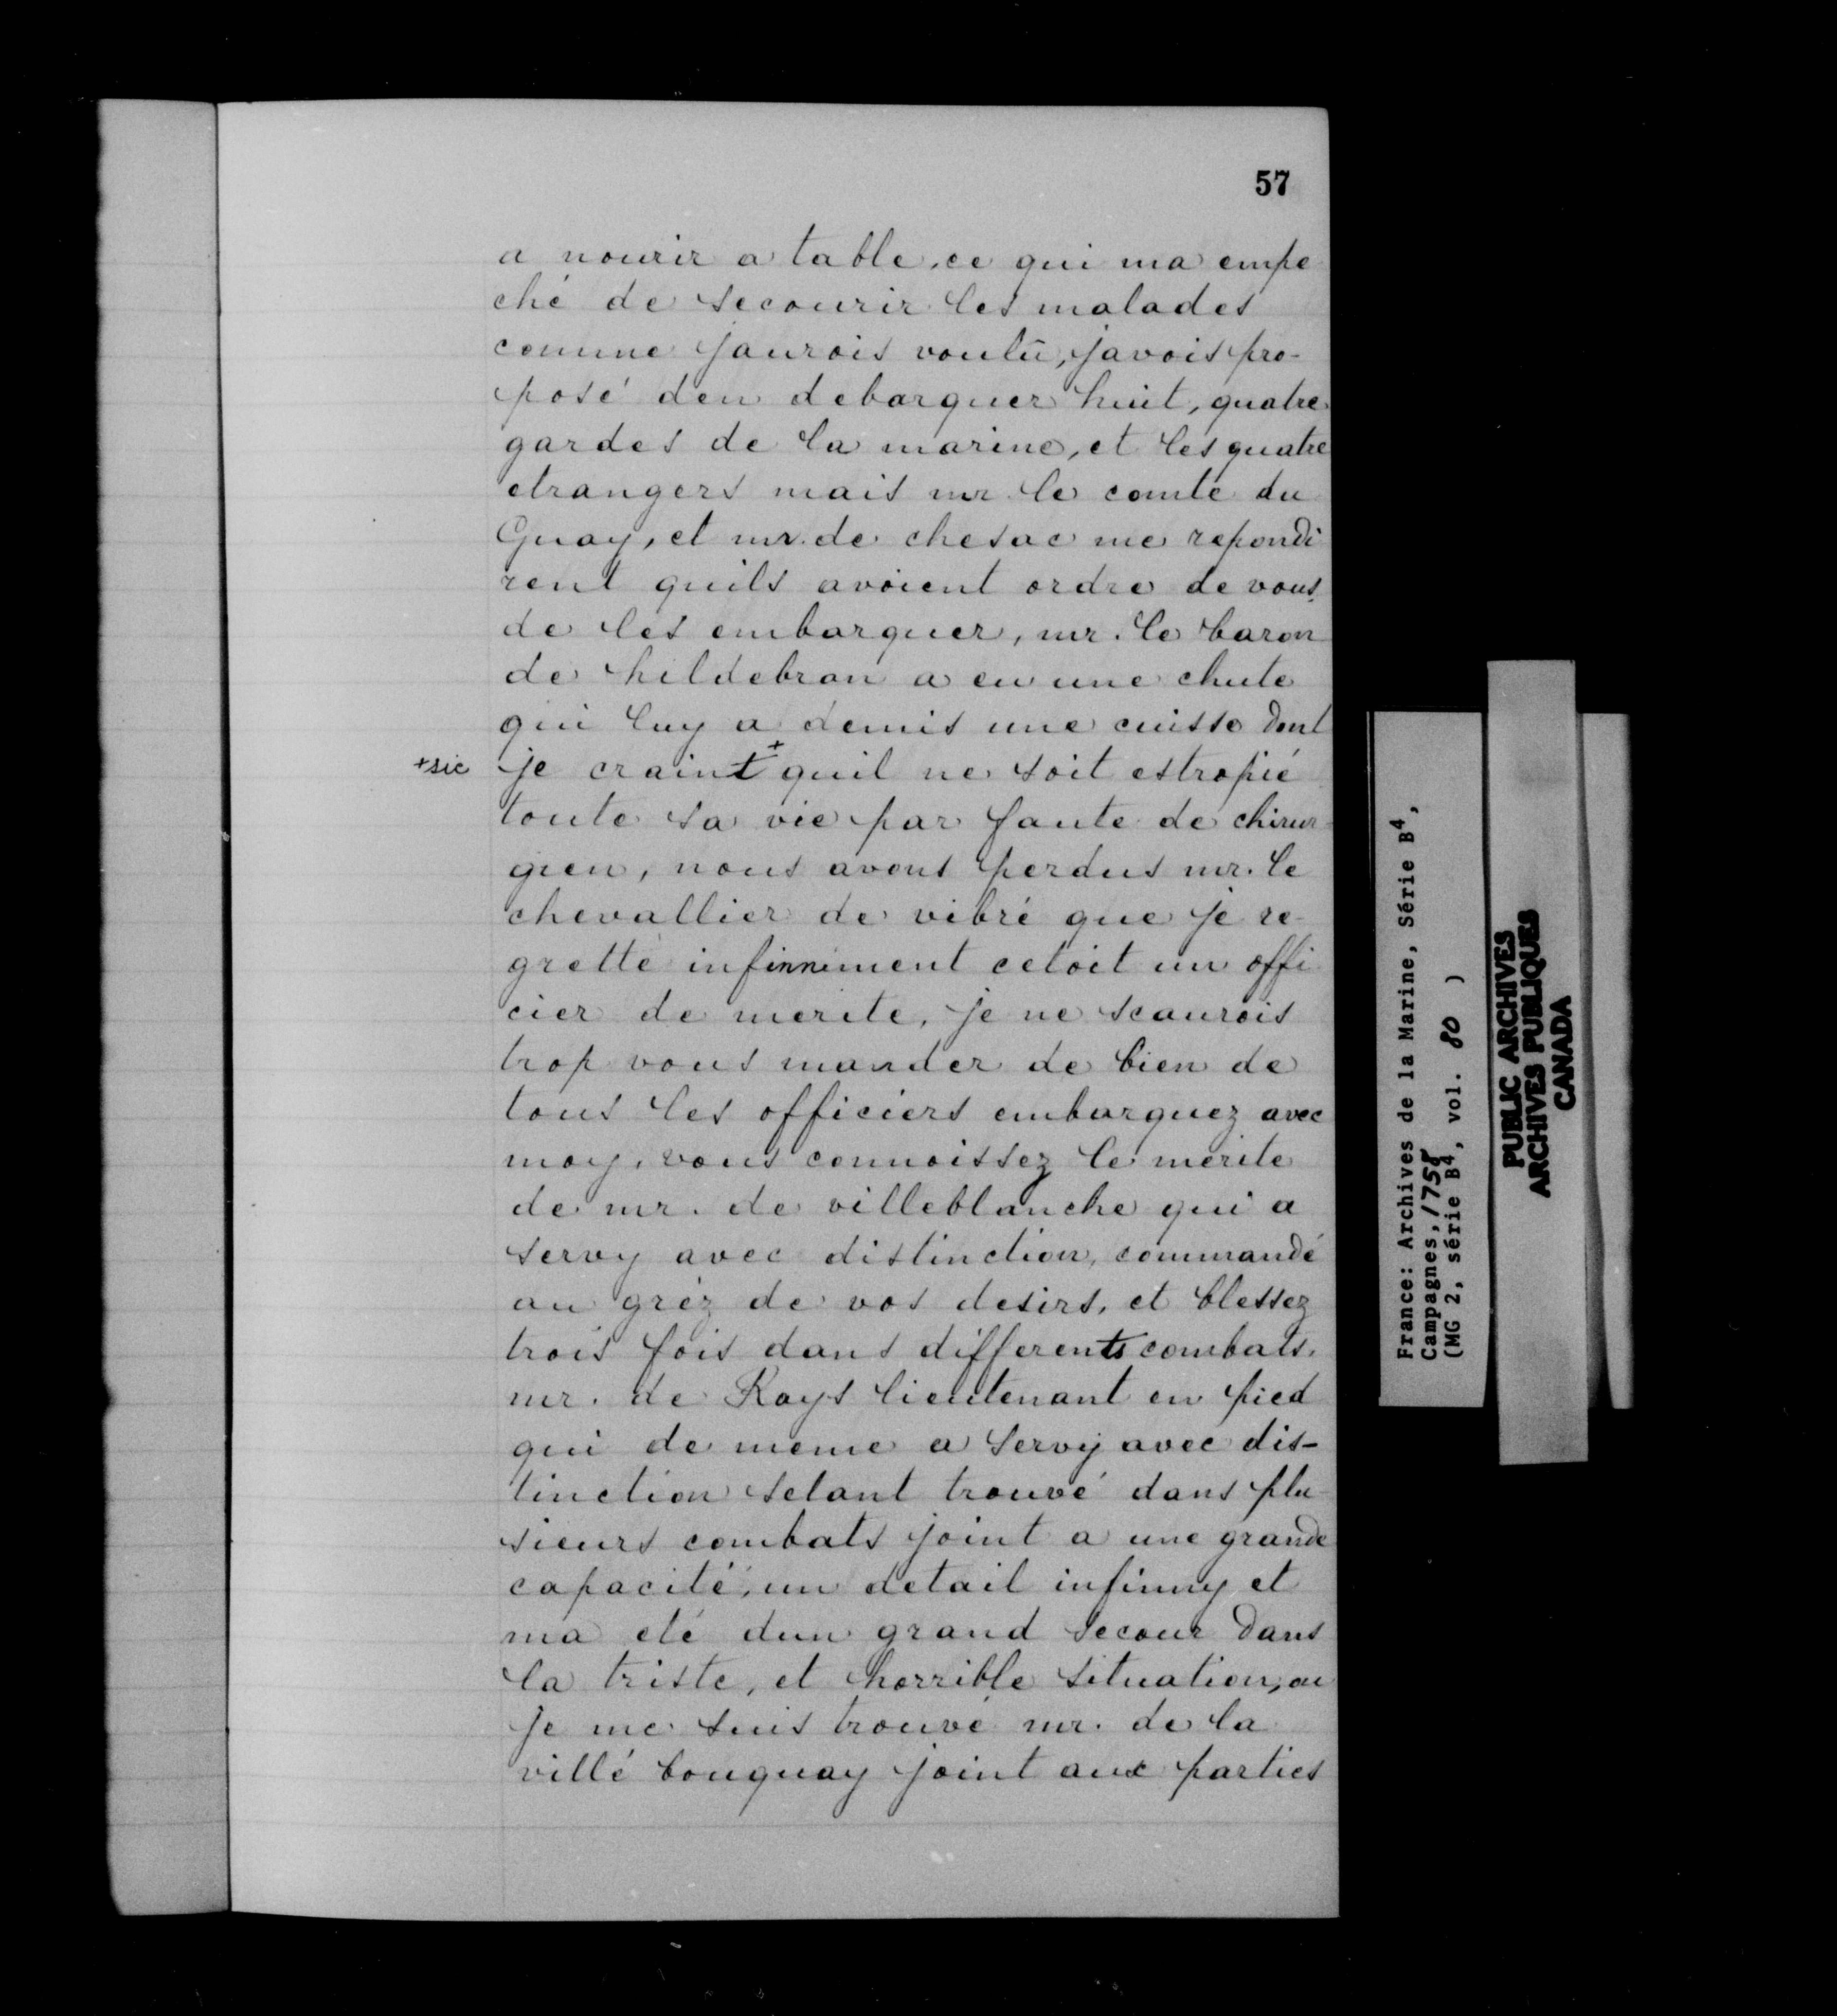 57
a nourir a table, ce qui ma empe
ché de secourir les malades
comme jaurois voulû, javois pro-
posé den debarquer huit, quatre
gardes de la marine, et les quatre
etrangers mais mr. le comte du
Guay, et mr. de chesac me repondi
rent quils avoient ordre de vous
de les embarquer, mr. le baron
de hildebran a eu une chute
qui luy a demis une cuisse dont
+sic
je craint + quil ne soit estropié
toute sa vie par faute de chirur
gien, nous avons perdus mr. le
chevallier de vibré que je re-
grette infinniment cetoit un offi
cier de merite, je ne scaurois
trop vous mander de bien de
tous les officiers embarquez avec
moy, vous connoissez le merite
de mr. de villeblanche qui a
servy avec distinction, commandé
au gréz de vos desirs, et blessez
trois fois dans differents combats.
mr. de Rays lieutenant en pied
qui de meme a servy avec dis-
tinction setant trouvé dans plu
sieurs combats joint a une grande
capacité, un detail infinny et
ma eté dun grand secour dans
la triste, et horrible situation, ou
je me suis trouvé mr. de la
villé bouquay joint aux parties
France: Archives de la Marine, Série B4,
Campagnes, 1758
(MG 2, série B4, vol. 80 )
PUBLIC ARCHIVES
ARCHIVES PUBLIQUES
CANADA